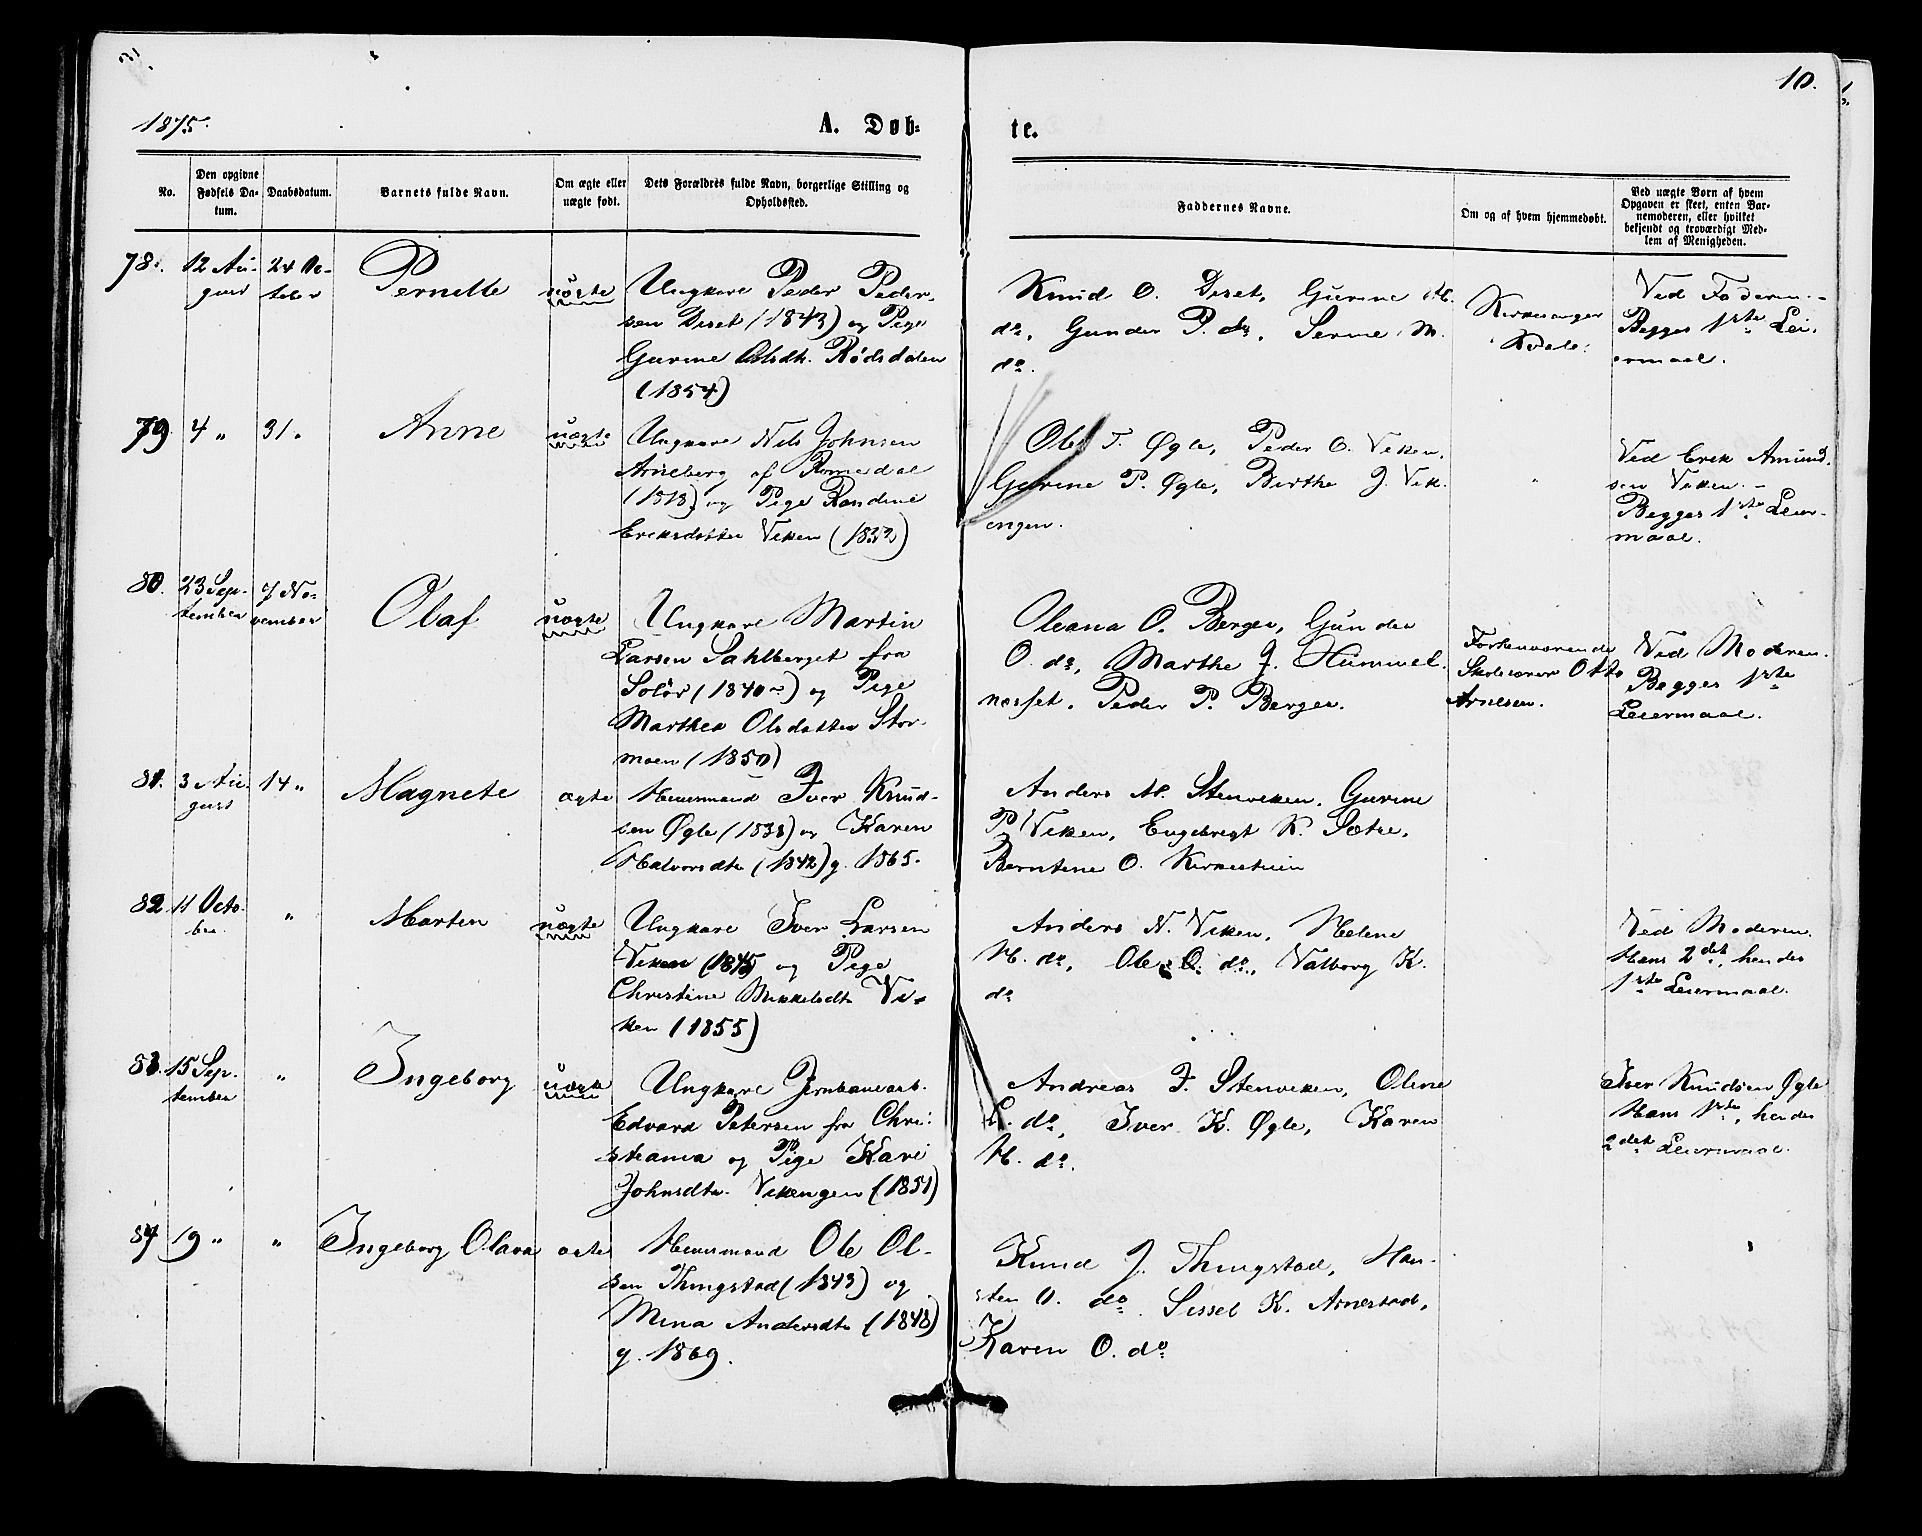 10.
1875.
A. Døb-
te.
No.
Den opgivne
Fødsels Da-
tum.
Daabsdatum.
Barnets fulde Navn.
Om ægte eller
uægte født.
Dets Forældres fulde Navn, borgerlige Stilling og
Opholdssted.
Faddernes Navne.
Om og af hvem hjemmedøbt.
Ved uægte Børn af hvem
Opgaven er skeet, enten Bar-
nemoderen, eller hvilket
bekjendt og troværdigt Med-
lem af Menigheden.
78.
12 Au-
gust
24 Oc-
tober
Pernille
uægte
Ungkarl Peder Peder-
sen Diset (1843) og Pige
Gurine Olsdt. Rødsdalen
(1854)
Knud O. Diset, Gurine M.
do, Gunder P. do, Serine M.
do.
Kirkesanger
Ved Faderen. -
Begges 1ste Lei-
ermaal.
79
4 "
31 "
Anne
uægte
Ungkarl Nils Johnsen
Arneberg af Romedal
og Pige Randine
Eriksdatter Viken
Ole T. Øgle, Peder O. Viken,
Gurine P. Øgle, Birthe J. Vik-
engen.
"
Ved Erik Amund-
sen Viken. -
Begges 1ste Leier-
maal.
80.
23 Sep-
tember
7 No-
vember
Olaf
uægte
Ungkarl Martin
Larsen Sahlberget fra
Solør (1840) og Pige
Marthea Olsdatter Stor-
moen (1850)
Oleana O. Berger, Gunder
O. do, Marthe J. Hummel-
næsset, Peder P. Berger.
Forhenværende
Skolelærer Otto
Arnesen.
Ved Moderen.
Begges 1ste
Leiermaal.
81.
3 Au-
gust
14 "
Magnete
ægte
Huusmand Iver Knud-
sen Øgle (1838) og Karen
Halvorsdtr (1842) g. 1865.
Anders M. Stenviken, Gurine
P. Viken, Engebregt K. Sætre,
Berntine O. Kirkestuen
82.
11 Octo-
ber
"
Marten
uægte
Ungkarl Iver Larsen
Viken (1845) og Pige
Christine Mikkelsdtr Vi-
ken (1855)
Anders N. Viken, Helene
H. do, Ole O. do, Valborg K.
do
Ved Moderen.
Hans 2det, hendes
1ste Leiermaal.
83.
15 Sep-
tember
"
Ingeborg
uægte
Ungkarl Jernbanearb.
Edvard Petersen fra Chri-
stiania og Pige Kari
Johnsdtr. Vikengen (1851)
Andreas F. Stenviken, Oline
L. do, Iver K. Øgle, Karen
H. do.
Iver Knudsen Øgle
Hans 1ste, hendes
2det Leiermaal.
84
19 "
"
Ingeborg Olava
ægte
Huusmand Ole Ol-
sen Thingstad (1843) og
Mina Andersdtr (1848)
g. 1869.
Knud J. Thingstad, Han-
sten O. do. Sissel K. Arnestad,
Karen O. do